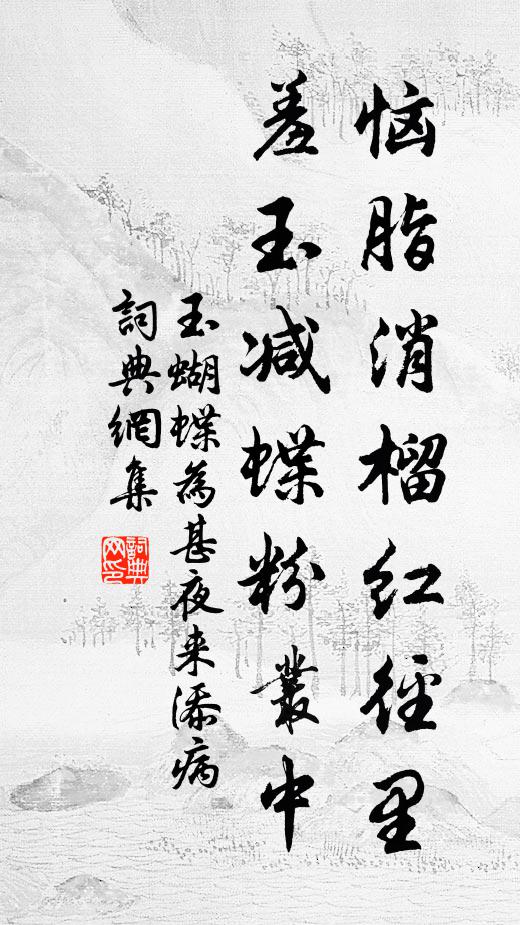 恼脂消榴红径里
羞玉减蝶粉丛中
玉蝴蝶為甚夜来添病
詞典網集
詞典網印